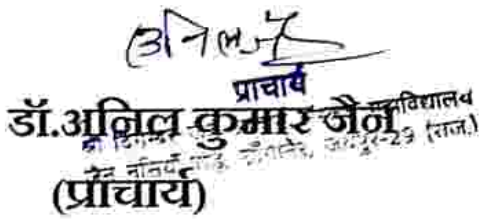 अनिल जैन
प्राचार्य
डॉ.अनिल कुमार जैन
महाविद्यालय
सांगानेर, जयपुर-29 (राज.)
(प्राचार्य)